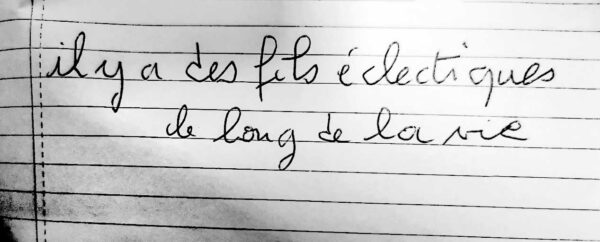 il y a des fils éclectiques
le long de la vie